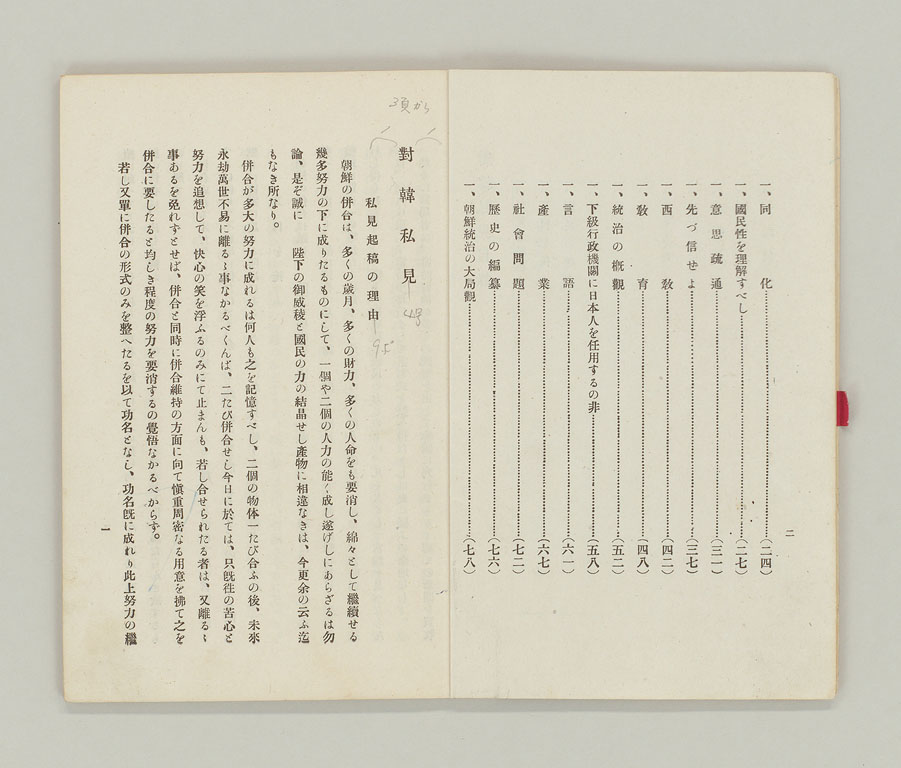 二
一、同化……(二四)
一、國民性を理解すべし……(二七)
一、意思疏通……(三一)
一、先づ信せよ……(三七)
一、西教……(四二)
一、敎育……(四八)
一、統治の概觀……(五二)
一、下級行政機關に日本人を任用するの非……(五八)
一、言語……(六一)
一、產業……(六七)
一、社會問題……(七二)
一、歷史の編纂……(七六)
一、朝鮮統治の大局觀……(七八)
3頁から
對韓私見
4号
私見起稿の理由
9ポ
朝鮮の併合は、多くの歲月、多くの財力、多くの人命をも要消し、綿々として繼續せる
幾多努力の下に成りたるものにして、一個や二個の人力の能く成し遂げしにあらざるは勿
論、是ぞ誠に 陛下の御威稜と國民の力の結晶せし產物に相違なきは、今更余の云ふ迄
もなき所なり。
併合が多大の努力に成れるは何人も之を記憶すべし、二個の物体一たび合ふの後、未來
永劫萬世不易に離るゝ事なかるべくんば、二たび併合せし今日に於ては、只既往の苦心と
努力を追想して、快心の笑を浮ふるのみにて止まんも、若し合せられたる者は、又離るゝ
事あるを免れずとせば、併合と同時に併合維持の方面に向て愼重周密なる用意を拂て之を
併合に要したると均しき程度の努力を要消するの覺悟なかるべからず。
若し又單に併合の形式のみを整へたるを以て功名となし、功名既に成れり此上努力の繼
一